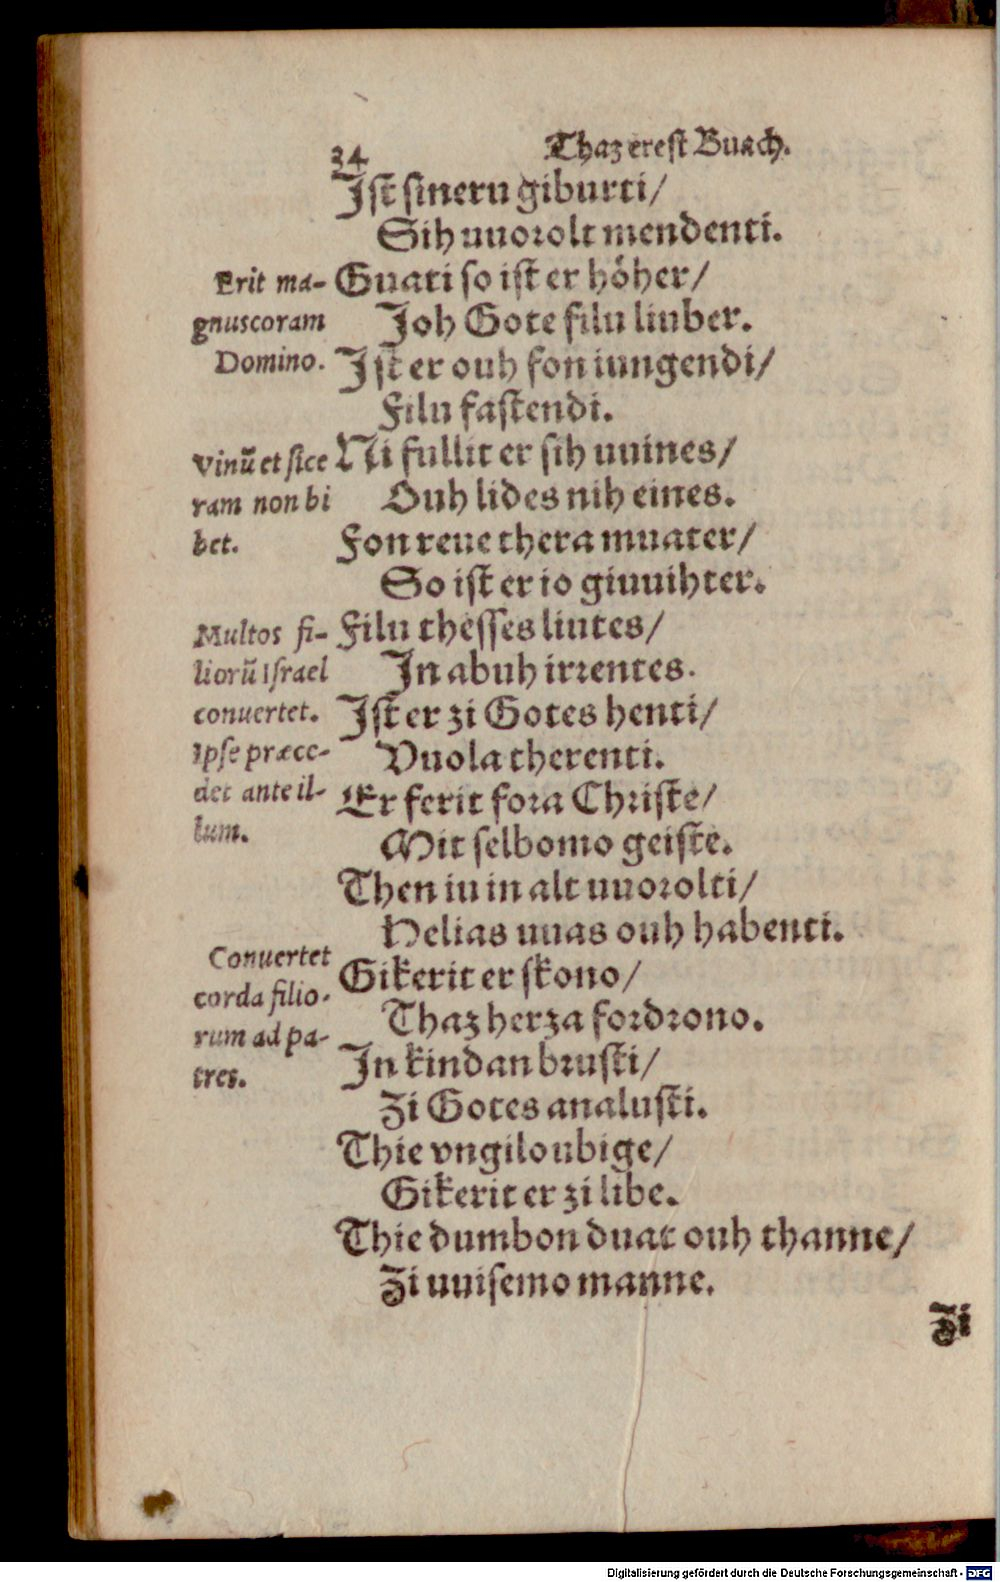 34 Thaz erest Buach.
Ist sineru giburti/
Sih uuorolt mendenti.
Guati so ist er hóher/
Joh Gote filu liuber.
Ist er ouh fon iungendi/
Filu fastendi.
Ni fullit er sih uuines/
Ouh lides nih eines.
Fon reue thera muater/
So ist er io giuuihter.
Filu thesses liutes/
In abuh irrentes.
Ist er zi Gotes henti/
Vuola therenti.
Er ferit fora Christe/
Mit selbomo geiste.
Then iu in alt uuorolti/
Helias uuas ouh habenti.
Gikerit er skono/
Thaz herza fordrono.
In kindan brusti/
Zi Gotes analusti.
Thie vngiloubige/
Gikerit er zi libe.
Thie dumbon duat ouh thanne/
Zi uuisemo manne.
Zi
Erit ma-
gnuscoram
Domino.
Vinũ et sice
ram non bi
bet.
Multos fi-
liorũ Israel
conuertet.
Ipse præce-
det ante il-
lum.
Conuertet
corda filio-
rum ad pa-
tres.
Digitalisierung gefördert durch die Deutsche Forschungsgemeinschaft - DFG